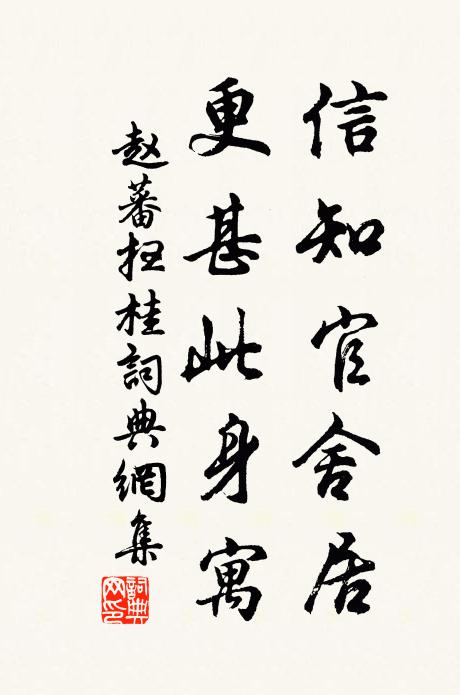 信知官舍居
更甚此身寓
赵蕃抝桂詞典網集
詞典网印